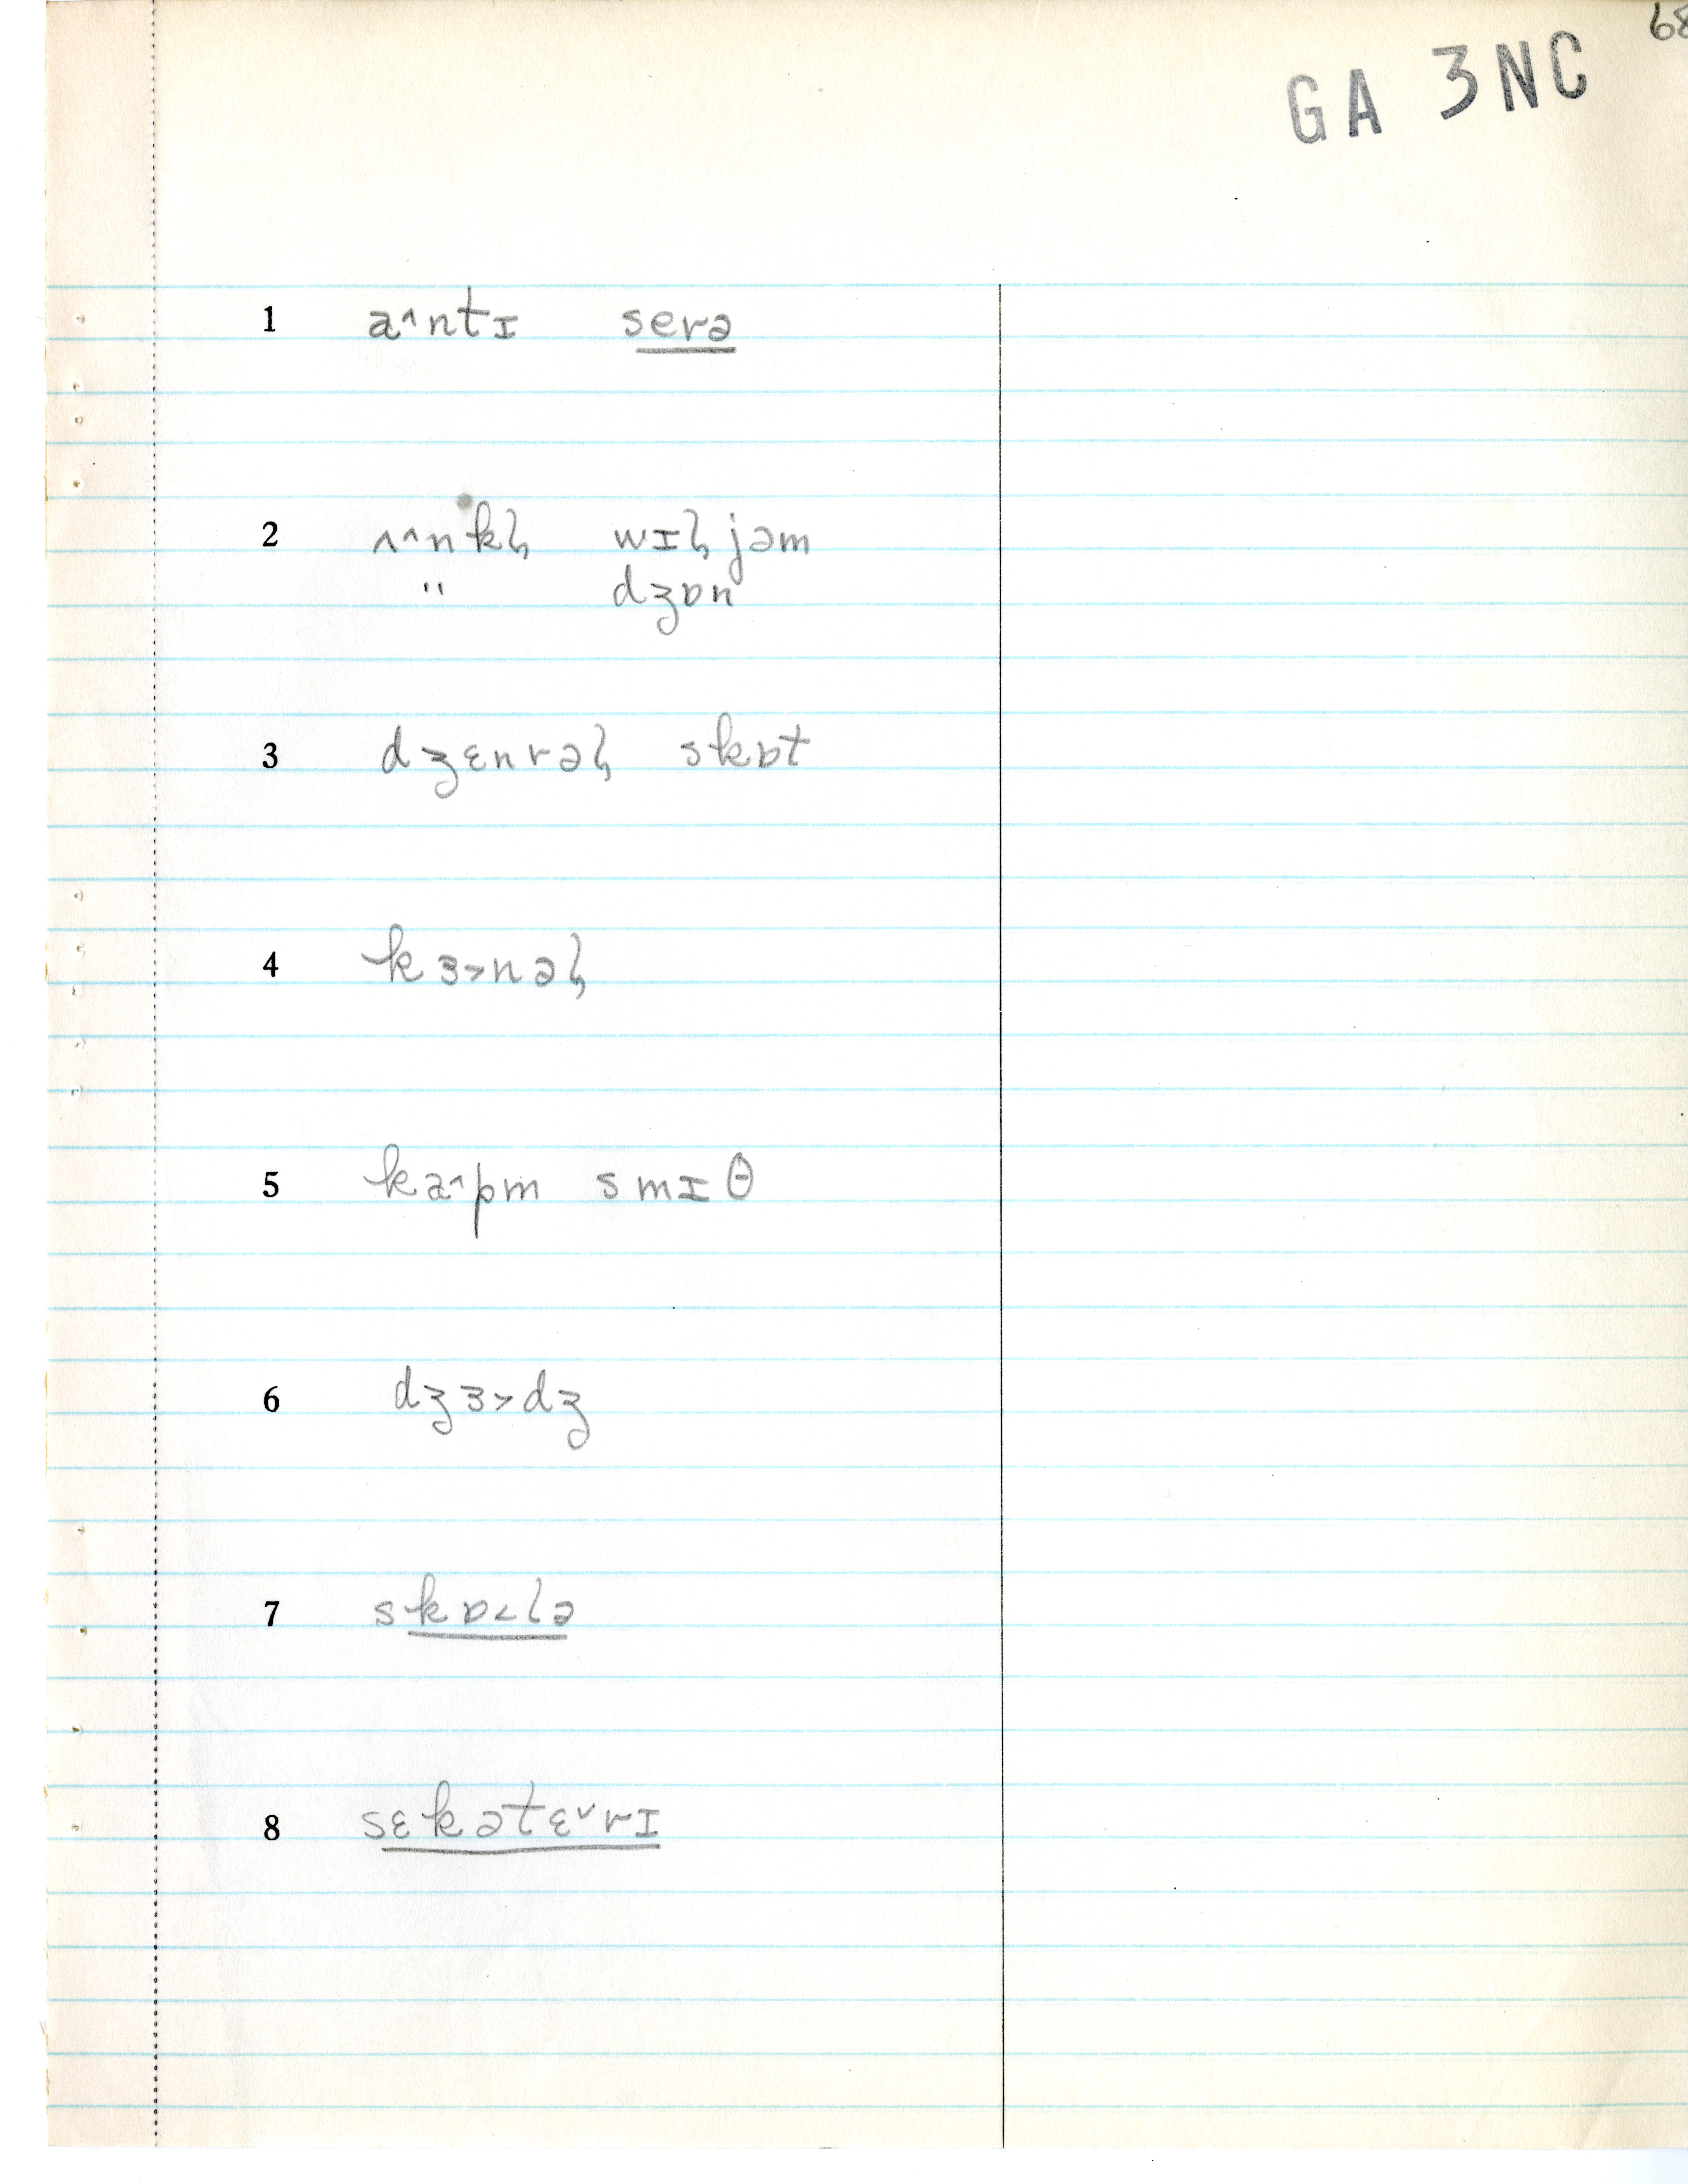 68
GA 3NC
1 a˄ntɪ serə
2 ʌ˄nkɫ wɪɫjəm
" dʒɒn
3 dʒɛnrəɫ skɒt
4 kɜ˃nəɫ
5 ka˄pm smɪθ
6 dʒɜ˃dʒ
7 skɒ˂lə
8 sɛkətɛ˅rɪ